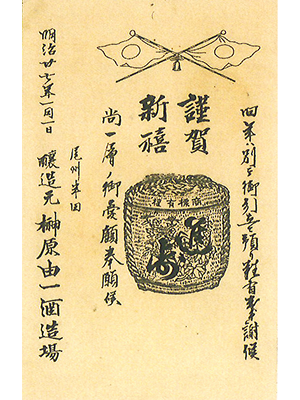 別テ御引立
難有奉謝候
謹賀
新禧
尚一層ノ御愛顧奉願候
尾州半田
醸造元 榊原由一酒造場
明治廿 年一月一日